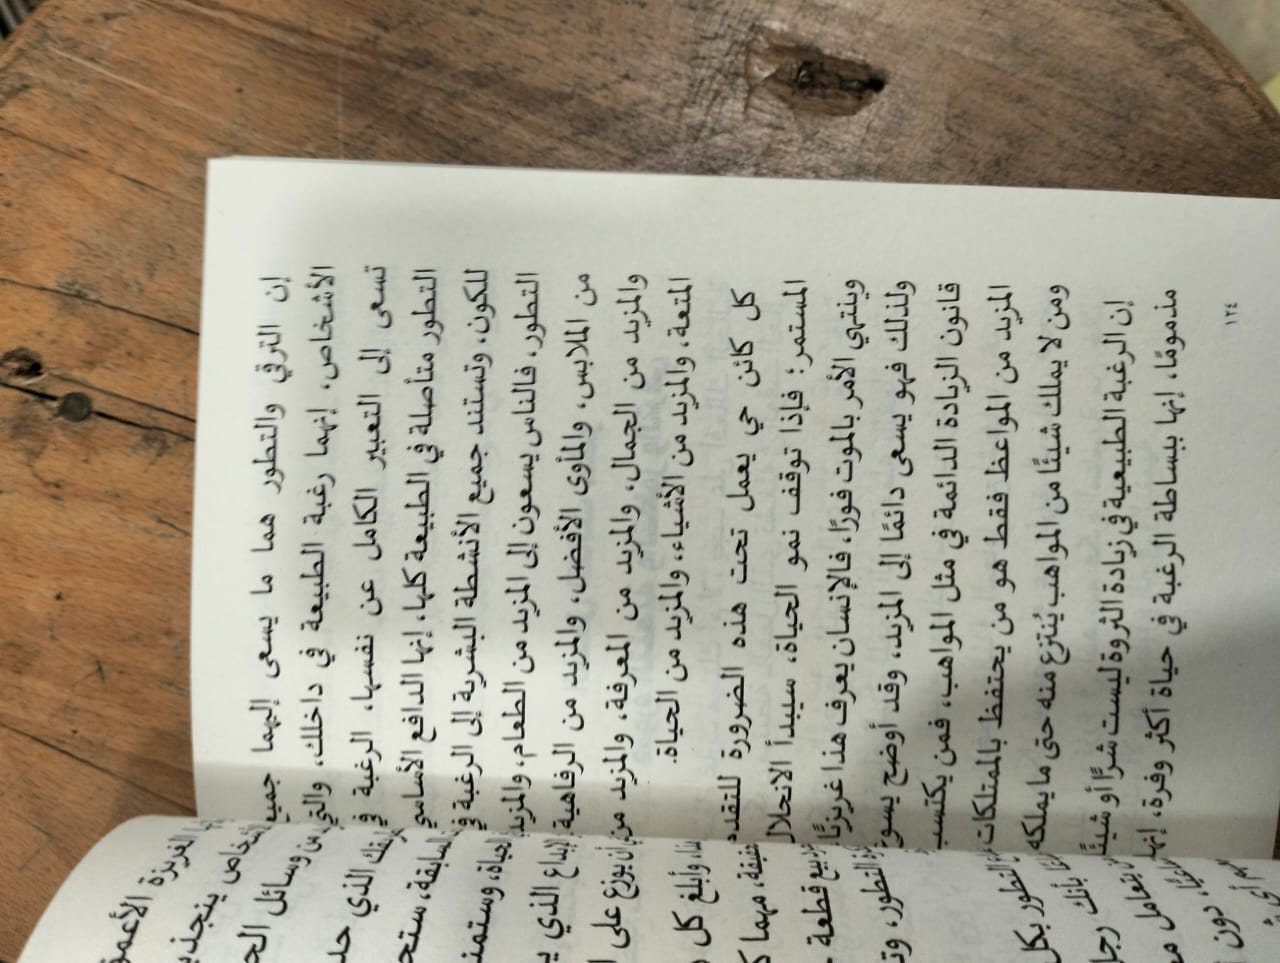 إن الترقي والتطور هما ما يسعى إليهما جميع
الأشخاص، إنهما رغبة الطبيعة في داخلك، والتي
تسعى إلى التعبير الكامل عن نفسها، الرغبة في
التطور متأصلة في الطبيعة كلها، إنها الدافع الأساسي
للكون، وتستند جميع الأنشطة البشرية إلى الرغبة في
التطور، فالناس يسعون إلى المزيد من الطعام، والمزيد
من الملابس، والمأوى الأفضل، والمزيد من الرفاهية
والمزيد من الجمال، والمزيد من المعرفة، والمزيد من
المتعة، والمزيد من الأشياء، والمزيد من الحياة.
كل كائن حي يعمل تحت هذه الضرورة للتقدم
المستمر؛ فإذا توقف نمو الحياة، سيبدأ الانحلال
وينتهي الأمر بالموت فورًا، فالإنسان يعرف هذا غريزيًا
ولذلك فهو يسعى دائمًا إلى المزيد، وقد أوضح يسوع
قانون الزيادة الدائمة في مثل المواهب، فمن يكتسب
المزيد من المواعظ فقط هو من يحتفظ بالممتلكات
ومن لا يملك شيئًا من المواهب يُنتزع منه حتى ما يملكه
إن الرغبة الطبيعية في زيادة الثروة ليست شرًا أو شيئًا
مذمومًا، إنها ببساطة الرغبة في حياة أكثر وفرة، إنها
١٢٤
الغريزة
ينجذ
وسائل
الذي
السابقة،
الحياة، وستمن
الذي
يوزع على
وأبلغ كل
مهما
بيع قطعة
التطور،
التطور بكل
بأنك
يتعامل
دون